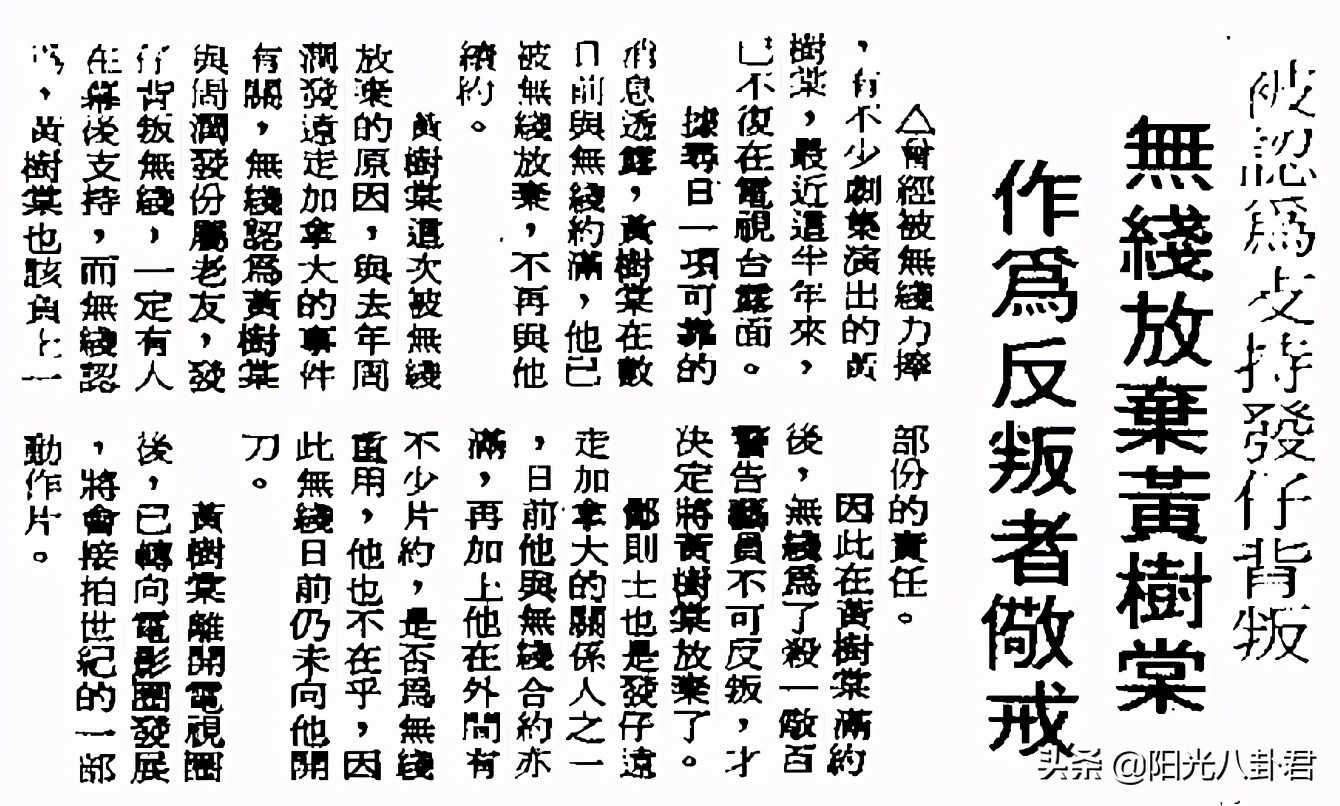 被認爲支持發仔背叛
無綫放棄黃樹棠
作爲反叛者儆戒
△曾經被無綫力捧
，有不少劇集演出的黃
樹棠，最近這半年來，
已不復在電視台露面。
據尋日一項可靠的
消息透露，黃樹棠在數
日前與無綫約滿，他已
被無綫放棄，不再與他
續約。
黃樹棠這次被無綫
放棄的原因，與去年周
潤發遠走加拿大的事件
有關，無綫認爲黃樹棠
與周潤發份屬老友，發
仔背叛無綫，一定有人
在幕後支持，而無綫認
爲，黃樹棠也該負上一
部份的責任。
因此在黃樹棠滿約
後，無綫爲了殺一儆百
警告藝員不可反叛，才
決定將黃樹棠放棄了。
鄭則士也是發仔遠
走加拿大的關係人之一
，日前他與無綫合約亦
滿，再加上他在外間有
不少片約，是否爲無綫
重用，他也不在乎，因
此無綫日前仍未向他開
刀。
黃樹棠離開電視圈
後，已轉向電影圈發展
，將會接拍世紀的一部
動作片。
头条 @阳光八卦君